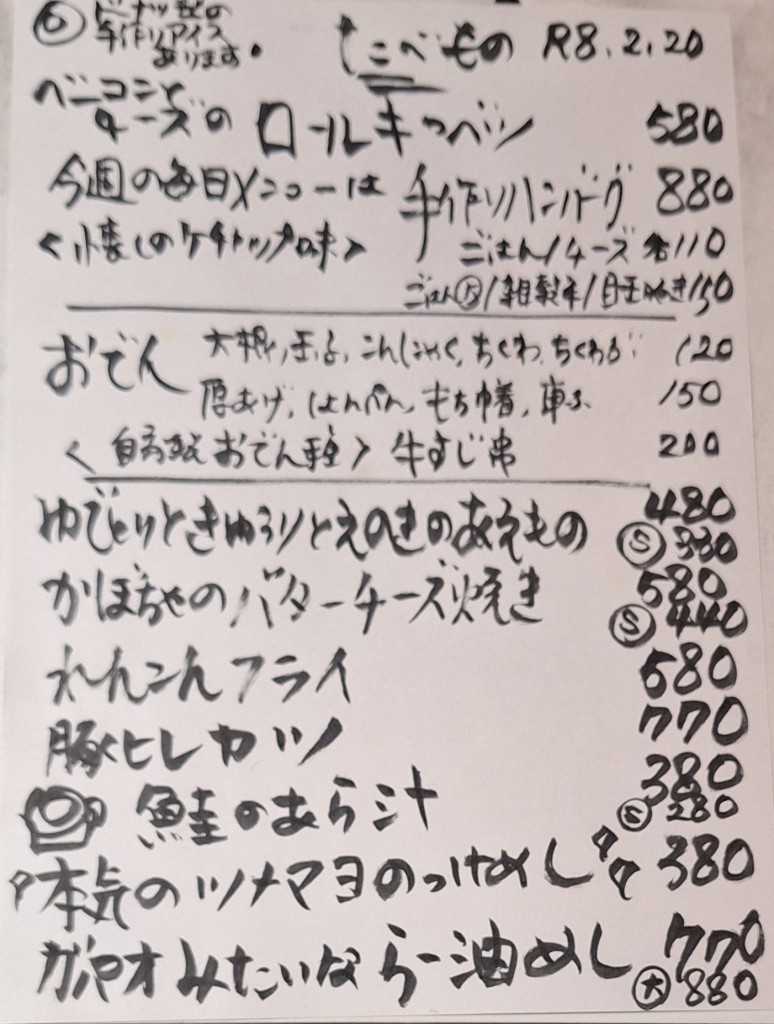 ⑥ ピーナッツ型の
手作りアイス
あります。
たべもの R8.2.20
ベーコンと
チーズの ロールキャベツ 580
今週の毎日メニューは 手作りハンバーグ 880
<懐しのケチャップ味> ごはん/チーズ 各110
ごはん大/雑穀米/目玉やき 150
おでん 大根, 玉子, こんにゃく, ちくわ, ちくわぶ 120
厚あげ, はんぺん, もち巾着, 車ふ 150
<自家製おでん種> 牛すじ串 200
ゆでとりときゅうりとえのきのあえもの 480
Ⓢ 330
かぼちゃのバターチーズ焼き 580
Ⓢ 440
れんこんフライ 580
豚ヒレカツ 770
鮭のあら汁 380
Ⓢ 280
本気のツナマヨのっけめし 380
ガパオみたいならー油めし 770
大 880